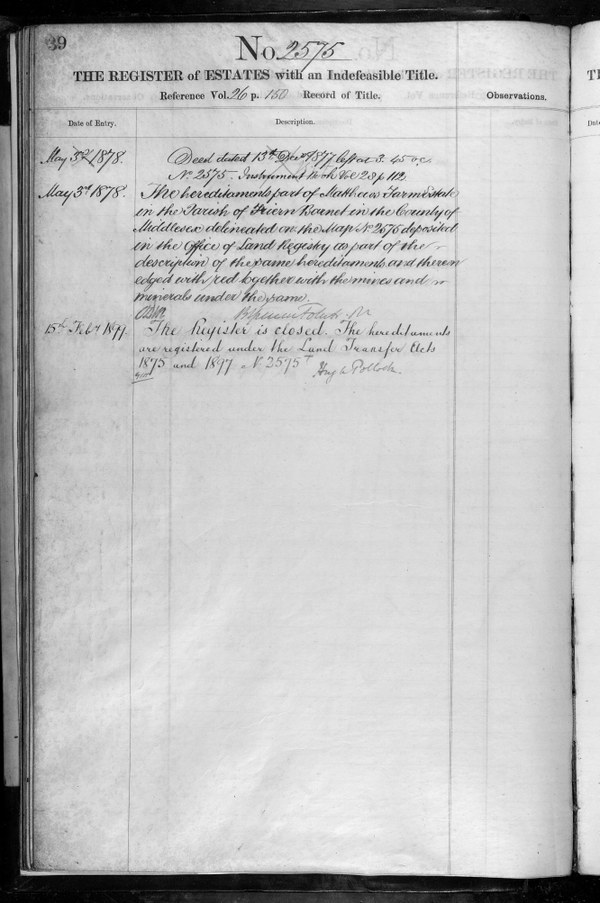 39
No. 2575
THE REGISTER of ESTATES with an Indefeasible Title.
Reference Vol. 26 p. 150 Record of Title.
Observations.
Date of Entry.
Description.
May 3rd 1878. Deed dated 13th Decr 1877 left at 3.45 o.c.
No 2575. Instrument Book Vol 28 p 112
May 3rd 1878. The hereditaments part of Matthews Farm Estate
in the Parish of Friern Barnet in the County of
Middlesex delineated on the Map No 2575 deposited
in the Office of Land Registry as part of the
description of the same hereditaments and thereon
edged with red together with the mines and
minerals under the same.
15th Feby 1899 The Register is closed. The hereditaments
are registered under the Land Transfer Acts
1875 and 1897 No 2575
Hugh Pollock.